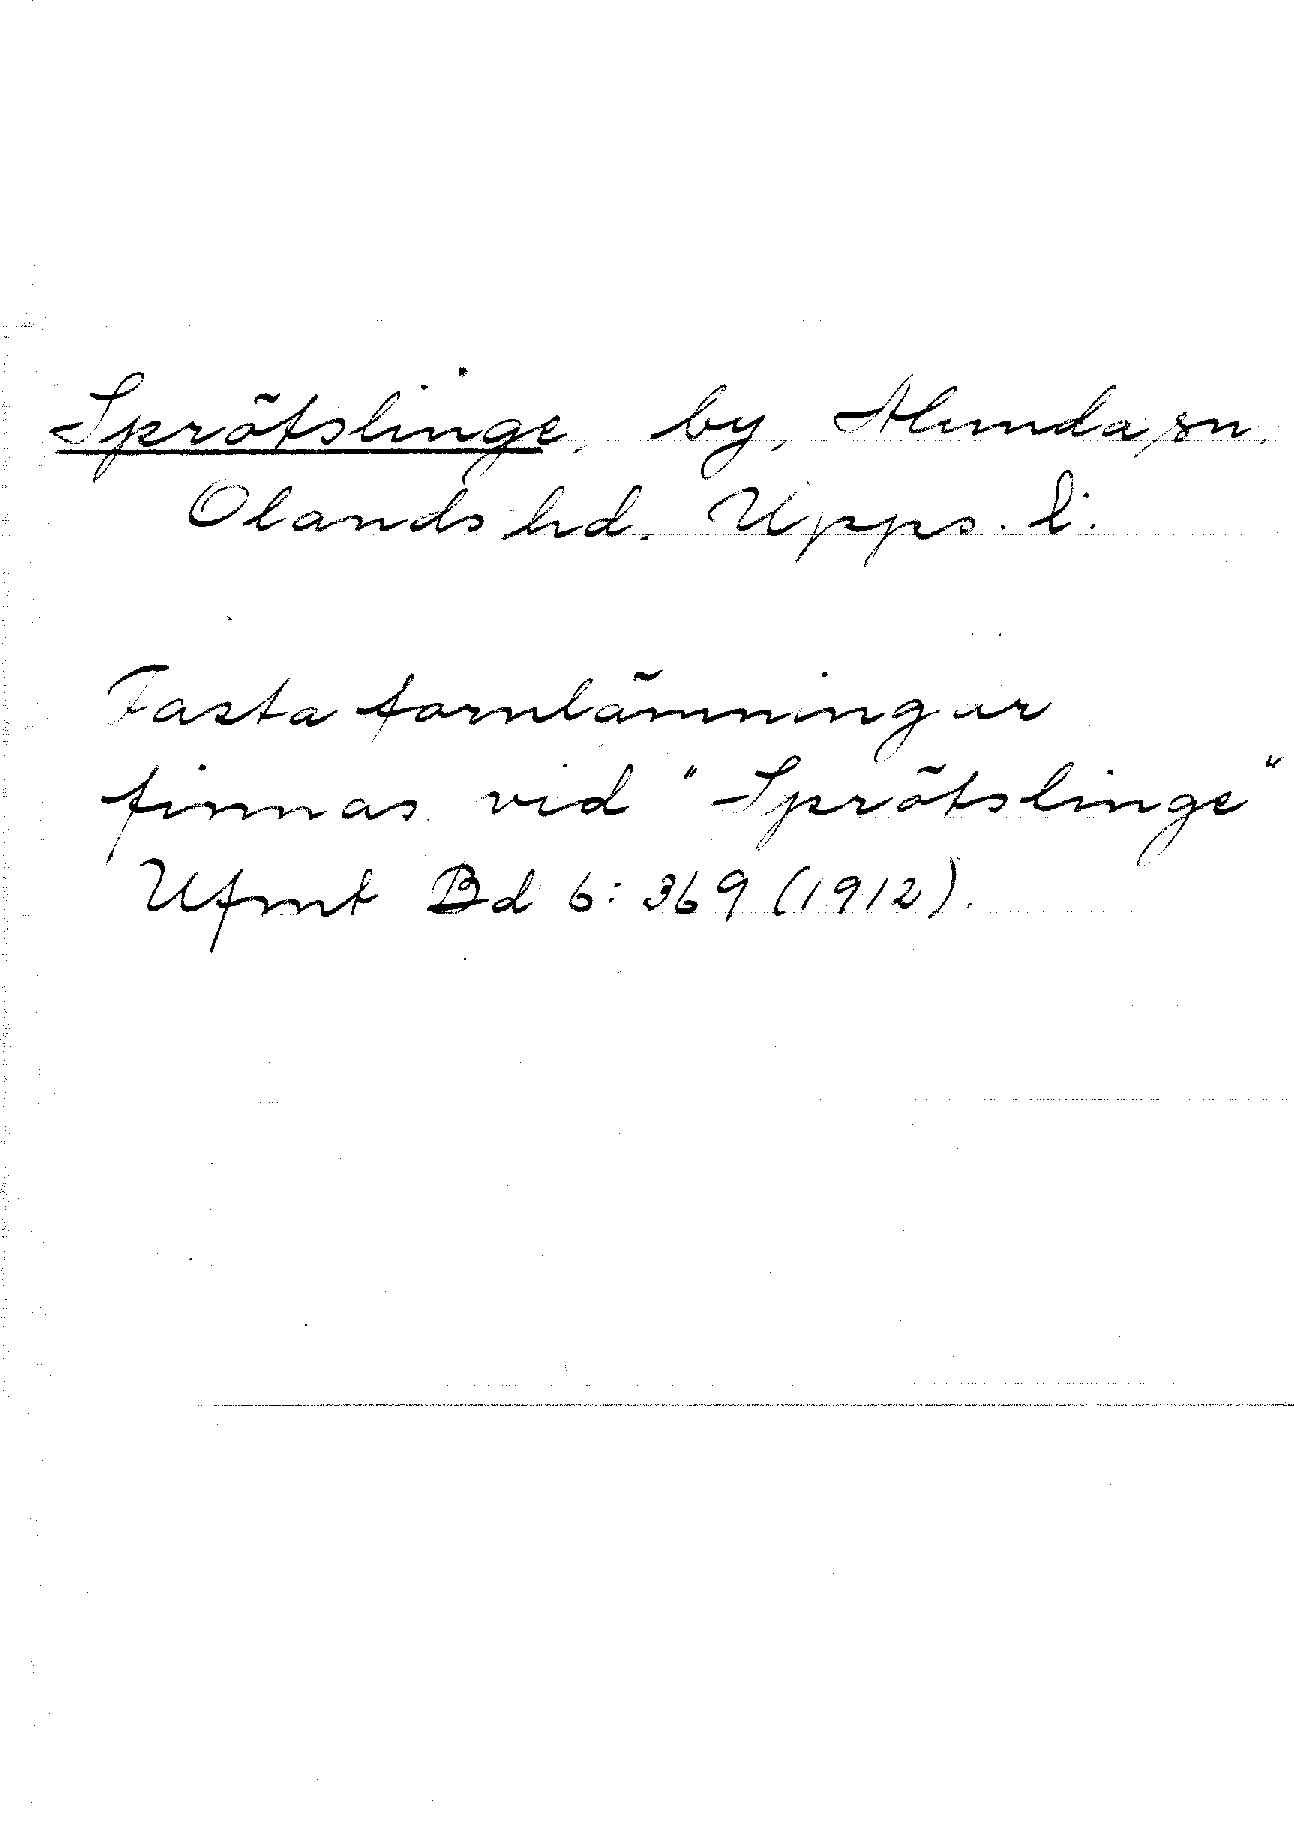 Sprötslinge, by, Alunda sn,
Olands hd. Upps. l.
Fasta fornlämningar
finnas vid "Sprötslinge"
Ufmt Bd 6: 369 (1912).